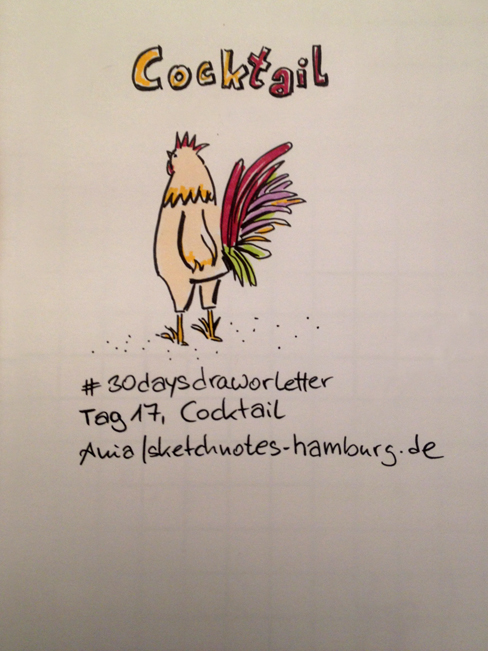 Cocktail
#30daysdraworletter
Tag 17, Cocktail
Ania/sketchnotes-hamburg.de